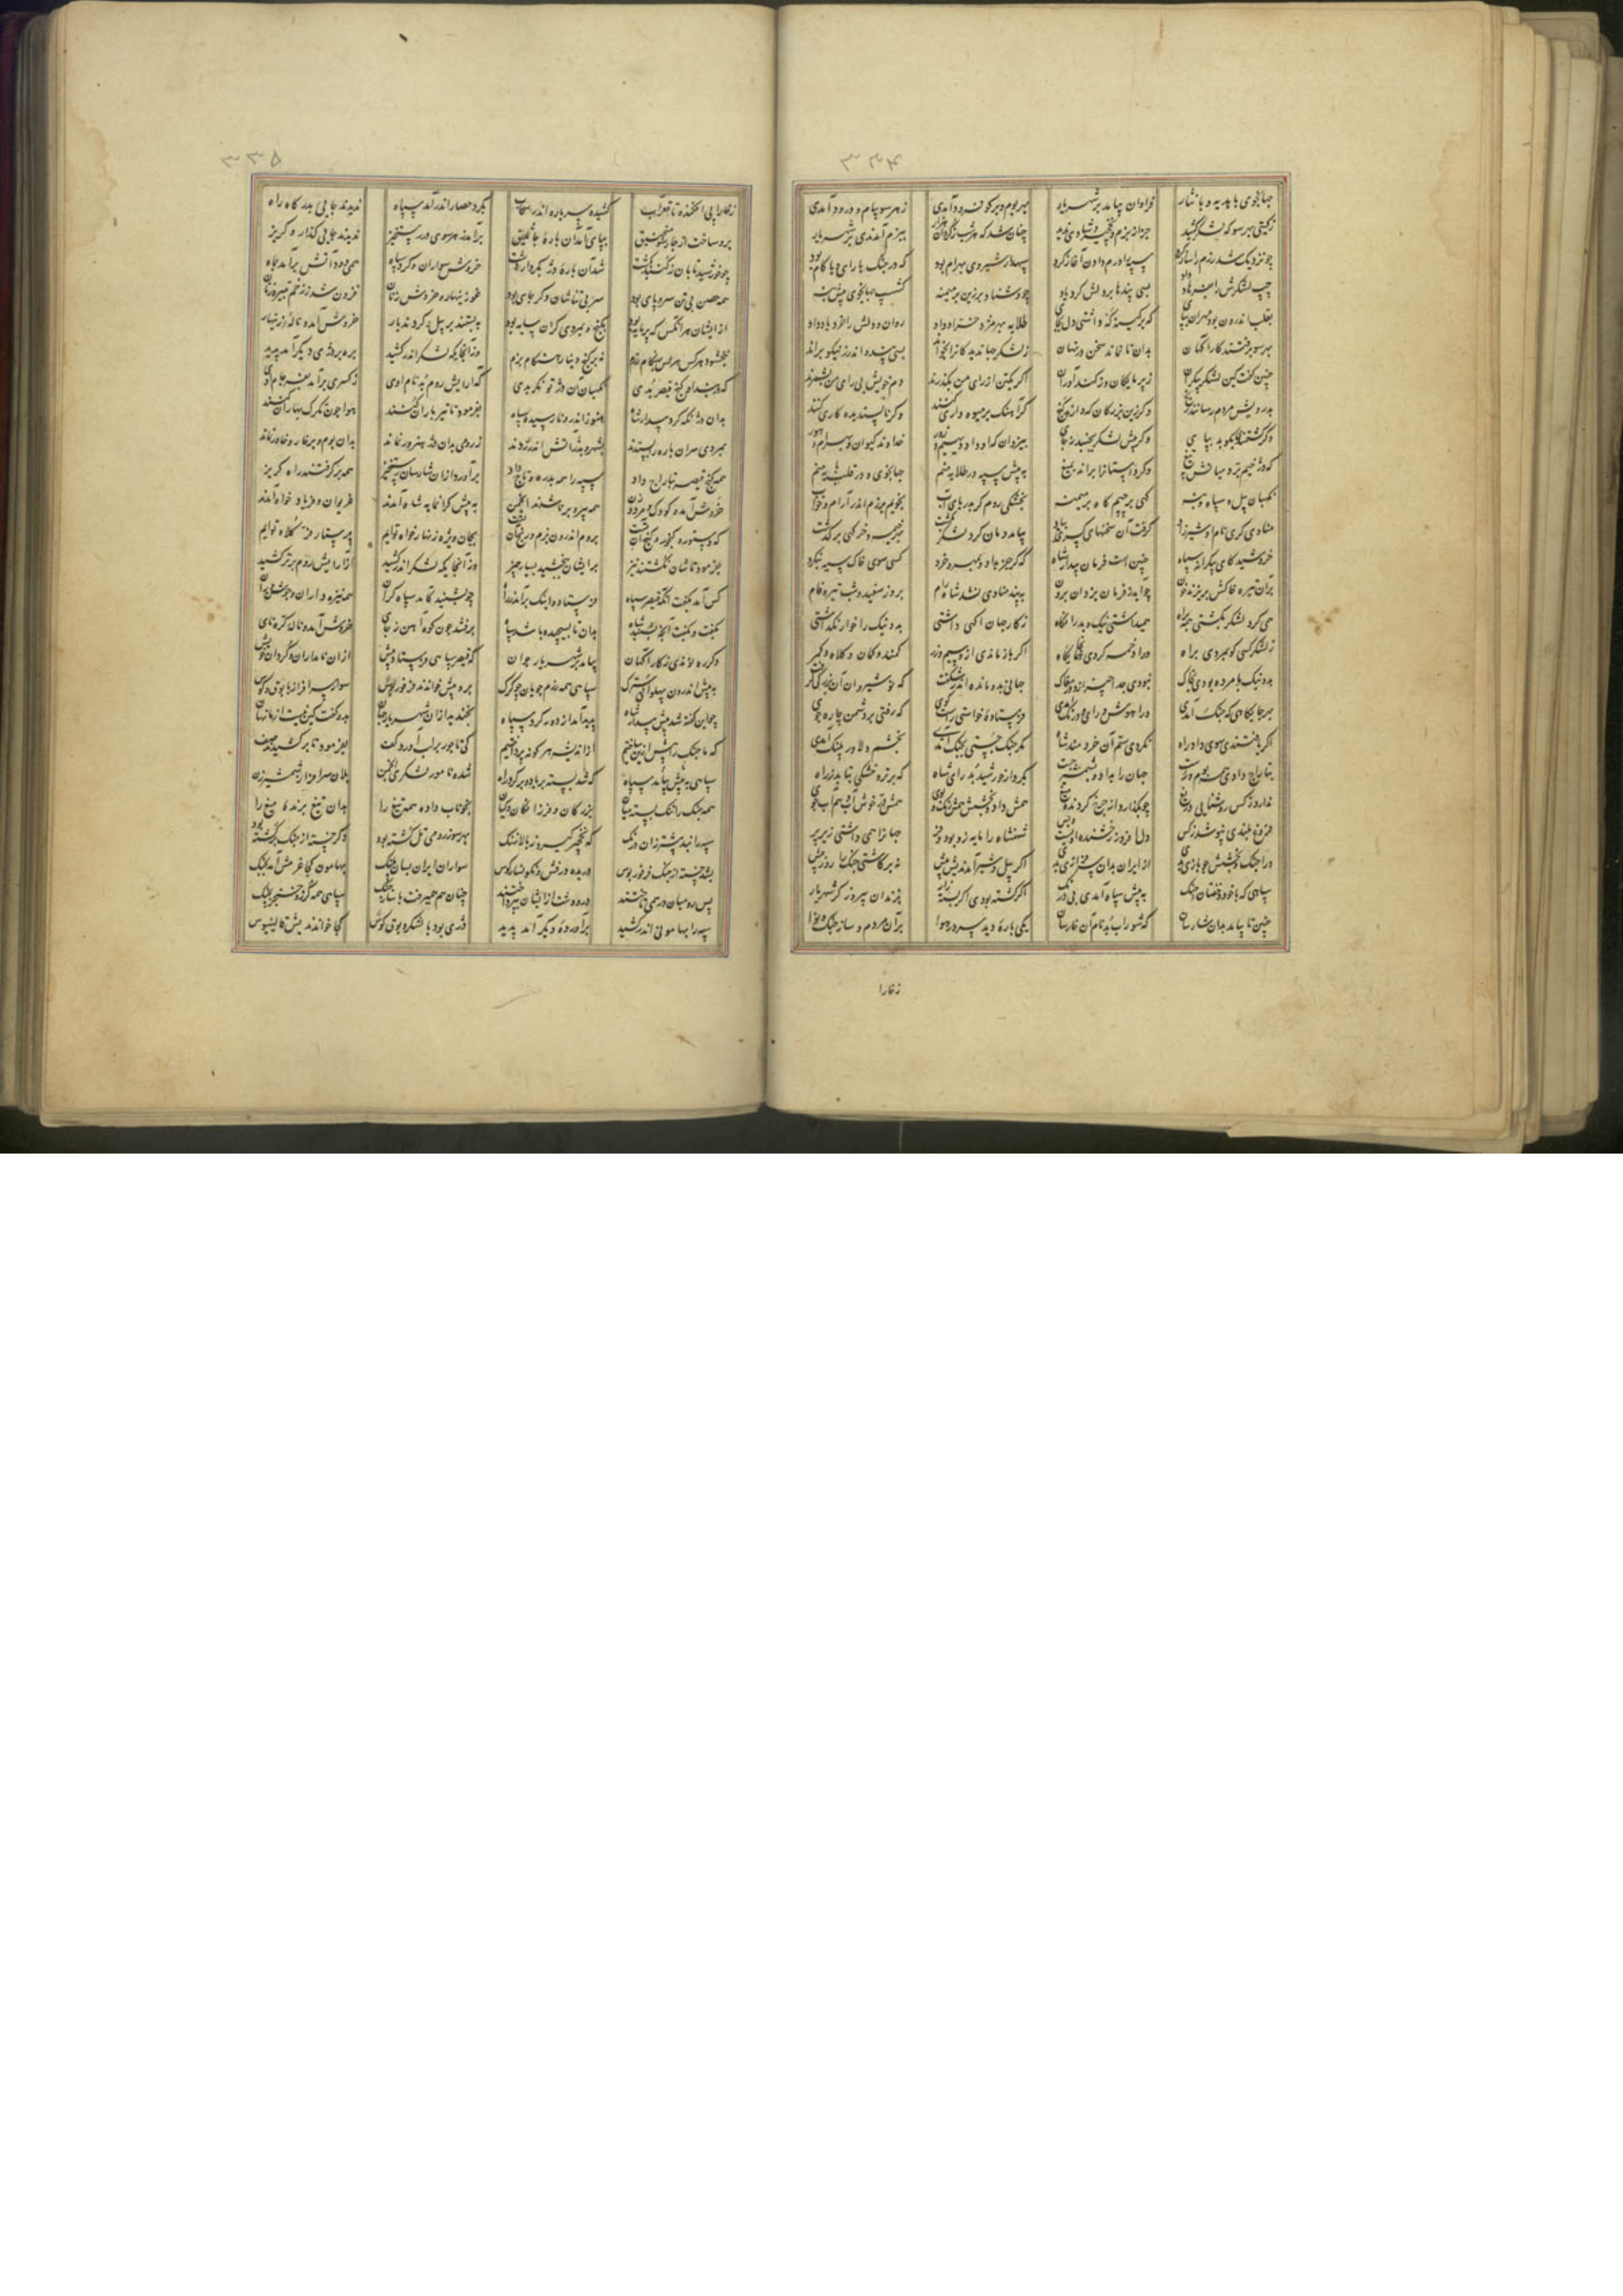 ۳۳۴
جهانجوی با هدیه و با نثار فراوان بیامد بر شهریار بهر بوم و بر کو فرود آمدی ز هر سو پیام و درود آمدی
ز گیتی بهر سو که لشکر کشید جز از بزم و نخچیر و شادی ندید چنان شد که هر شب ز گردان هزار ببزم آمدندی بر شهریار
چو نزدیک شد رزم را ساز کرد سپه را درم دادن آغاز کرد سپهدار شیروی بهرام بود که در جنگ با رای و با کام بود
چپ لشکرش را بفرهاد داد بسی پندها بر دلش کرد یاد چو وشتاد و برزین بر میمنه گشسپ جهانجوی پیش بنه
بقلب اندرون بود مهران بپای که بر کینه گه داشتی دل بجای طلایه بهرمزد خراد داد روان و دلش را خرد یاد داد
بهر سو برفتند کارآگهان بدان تا نماند سخن در نهان ز لشکر جهاندیدگانرا بخواند بسی پند و اندرز نیکو براند
چنین گفت کین لشکر بیکران ز بی مایگان وز گندآوران اگر یکتن از رای من بگذرند دم خویش بی رای من بشمرند
بدرویش مردم رسانند رنج وگر زین بزرگان که دارند گنج گر آهنگ بر میوه داری کنند وگر ناپسندیده کاری کنند
وگر کشتمندی بکوبد بپای وگر پیش لشکر بجنبد ز جای بیزدان که او داد دیهیم و زور خداوند کیوان و بهرام و هور
که دژخیم برد میانش بتیغ وگر داستانرا برآند بمیغ به پیش سپه در طلایه منم جهانجوی و در قلب مایه منم
نگهبان پیل و سپاه و بنه گهی بر چپم گاه بر میمنه بخشکی روم گر بدریای آب نجویم برزم اندر آرام و خواب
منادی گری نام او شیرزاد گرفت آن سخنهای کسری بیاد بیامد دمان گرد لشکر بگشت بهر خیمه و خرگهی برگذشت
خروشید کای بیکرانه سپاه چنین است فرمان بیدار شاه که گر جز بداد و بمهر و خرد کسی سوی خاک سیه بنگرد
بران تیره خاکش بریزند خون چو آید ز فرمان یزدان برون منادی نشد شاه رام بروز سفید و شب تیره فام
همی گرد لشکر بگشتی براه همیداشتی نیک و بد را نگاه ز کار جهان آگهی داشتی بد و نیک را خوار نگذاشتی
ز لشکر کسی کو بمردی براه ورا دخمه کردی اگر باز ماندی ازو سیم و زر کمند و کمان و کلاه و کمر
بد و نیک با مرده بودی بخاک نبودی جدا چیز ازو در مغاک جهانی بدو مانده اندر شگفت که نوشیروان آن بزرگی گرفت
بهر جایگاهی که جنگ آمدی ورا هوش و رای و درنگ آمدی فرستاده خواستی راستگوی که رفتی بر دشمن چاره جوی
اگر یافتندی سوی داد راه نکردی ستم آن خردمند شاه اگر جنگ جستی بجنگ آمدی بخشم دلاور پلنگ آمدی
بتاراج دادی همه بوم و رست جهان را بداد و شمشیر جست بکردار خورشید بد رای شاه که بر تر و خشکی بتابد ز راه
ندارد ز کس روشنایی دریغ چو بگذارد از چرخ گردنده میغ همش داد و بخشش همش رنگ و بوی همش در خوشاب و هم آب جوی
فروغ بلندی نپوشد ز کس دل افروز و بخشنده اویست و بس شهنشاه را مایه زو بود و فر جهانرا همی داشتی زیر پر
ورا جنگ و بخشش چو بازی بدی از ایران بدان سرفرازی بدی اگر پیل و شیر آمدندیش پیش نه برگاشتی جنگ را روز بیش
سپاهی که با خود و خفتان جنگ به پیش سپاه آمدی بی درنگ اگر کشته بودی اگر بسته زار بزندان پیروزگر شهریار
چنین تا بیامد بدان شارسان که شوراب بد نام آن کارسان یکی باره دید سر در هوا پر از مردم و ساز جنگ و نوا
ز خارا
۳۳۵
ز خارا پی افکنده تا قعر آب کشیده سر باره اندر سحاب بگرد حصار اندر آمد سپاه ندیدند جایی بدرگاه راه
برو ساخت از چارسو منجنیق بپای آمد آن باره جاثلیق برآمد ز هر سوی در رستخیز ندیدند جایی گذار و گریز
چو خورشید تابان ز گنبد بگشت شد آن باره دژ بکردار دشت خروش سواران و گرد سپاه همی دود و آتش برآمد بماه
همه حصن بی تن سر و پای بود سر بی تناشان دگر جای بود غو زینهار و خروش زنان فزون شد ز زخم تبیره زنان
از ایشان هر آنکس که پرمایه بود بگنج و بمردی گران پایه بود ببستند بر پیل و کردند بار خروش آمد و ناله زینهار
نبخشود بر کس بهنگام رزم نه بر گنج و دینار هنگام بزم وزآنجایگه لشکر اندر کشید بره بر دژی دیگر آمد پدید
که در بند او گنج قیصر بدی نگهبان آن دژ توانگر بدی که آرایش روم بد نام اوی ز کسری برآمد بفرجام اوی
بدان دژ نگه کرد بیدار شاه هنوز اندرو نارسیده سپاه بفرمود تا تیرباران کنند هوا چون تگرگ بهاران کنند
بمردی سران باره بر بستدند بشهر اندر آتش اندر زدند ز رومی بدان دژ هنرور نماند بدان بوم و بر خار و خاور نماند
همه گنج قیصر بتاراج داد سپه را همه بدره و تاج داد برآورد ازان شارسان رستخیز همه برگرفتند راه گریز
خروش آمد و کودک و مرد و زن همه پیر و برنا شدند انجمن به پیش گرانمایه شاه آمدند غریوان و فریادخواه آمدند
که دستور و گنجور و گنج آن تست بروم اندرون بزم و رنج آن تست بجان ویژه زنهارخواه توایم پرستار فر کلاه توایم
بفرمود تاشان نکشتند نیز بر ایشان ببخشید بسیار چیز وزآنجایگه لشکر اندر کشید از آرایش روم برتر کشید
کس آمد بگفت آنگه قیصر سپاه فرستاد و اینک برآمد ز راه چو بشنید کامد سپاه گران همه نیزه داران و جوشن وران
بگفت و بگفت آنچه بشنید شاه بدان تا بسیجیده باشد سپاه برفتند چون کوه آهن ز جای خروش آمد و ناله کرنای
دگر ره نوندی ز کارآگهان بیامد بر شهریار جوان که قیصر سپاهی فرستاد پیش ازان نامداران و گردان خویش
به پیش اندرون پهلوانی سترگ سپاهی همه رزم جویان چو گرگ برومیش خوانند فرفوریوس سواری سرافراز با بوق و کوس
چو این گفته شد پیش بیدار شاه پدید آمد از دور گرد سپاه بخندید ازان شهریار جهان بدو گفت کین نیست از ما نهان
که ما جنگ را پیش ازین ساختیم از اندیشه هر گونه پرداختیم کی تاجور بر لب آورد کف بفرمود تا برکشیدند صف
سپاهی به پیش آمد سپاه که شد بسته بر باد بر گرد راه شده نامور لشکری انجمن یلان سرافراز شمشیرزن
همه جنگ را تنگ بسته میان بزرگان و فرزانگان و کیان بخوناب داده همه تیغ را بدان تیغ برنده میغ را
سپه را نبد بیشتر زان درنگ که نخچیر گیرد ز بالا پلنگ بهر سو ز رومی تل کشته بود دگر خسته از جنگ برگشته بود
بشد خسته از جنگ فرفوریوس دریده درفش و نگونسار کوس سواران ایران بسان پلنگ بهامون کجا غرمش آید بچنگ
پس رومیان در همی تاختند در و دشت از ایشان بپرداختند چنان هم همیرفت با ساز جنگ سپاهی همه گرز و خنجر بچنگ
سپه را بهامونی اندر کشید برآورده دیگر آمد پدید دژی بود با لشکر و بوق و کوس کجا خواندندیش قالینیوس